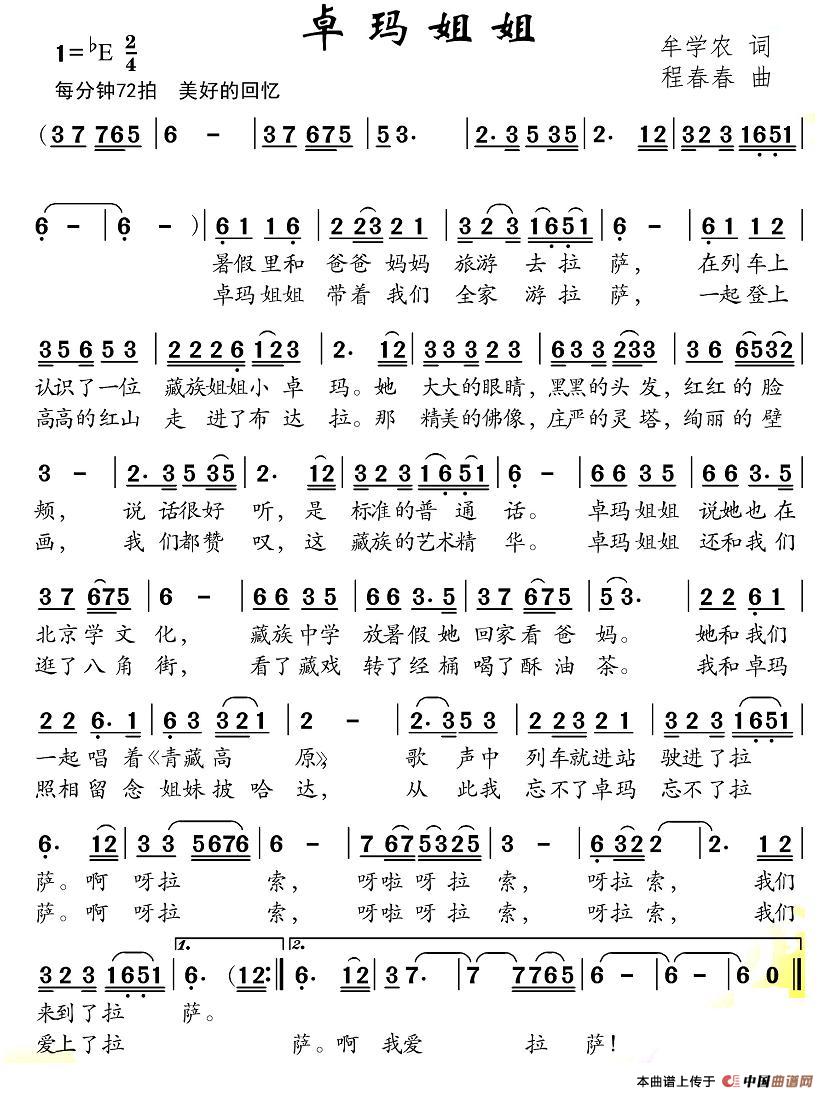 卓玛姐姐
1=♭E 2/4
牟学农 词
程春春 曲
每分钟72拍 美好的回忆
(3 7 7 6 5 | 6 - | 3 7 6 7 5 | 5 3· | 2· 3 5 3 5 | 2· 1 2 | 3 2 3 1 6 5 1 |
6 - | 6 - ) | 6 1 1 6 | 2 2 3 2 1 | 3 2 3 1 6 5 1 | 6 - | 6 1 1 2 |
暑假里和 爸爸 妈妈 旅游 去 拉 萨, 在列车上
卓玛姐姐 带着 我们 全家 游 拉 萨, 一起登上
3 5 6 5 3 | 2 2 2 6 1 2 3 | 2· 1 2 | 3 3 3 2 3 | 6 3 3 2 3 3 | 3 6 6 5 3 2 |
认识了一位 藏族姐姐小 卓 玛。她 大大的眼睛,黑黑的头发,红红的脸
高高的红山 走 进了布 达 拉。那 精美的佛像,庄严的灵塔,绚丽的壁
3 - | 2· 3 5 3 5 | 2· 1 2 | 3 2 3 1 6 5 1 | 6 - | 6 6 3 5 | 6 6 3· 5 |
颊, 说 话很好 听,是 标准的普 通 话。 卓玛姐姐 说她也在
画, 我 们都赞 叹,这 藏族的艺术精 华。 卓玛姐姐 还和我们
3 7 6 7 5 | 6 - | 6 6 3 5 | 6 6 3· 5 | 3 7 6 7 5 | 5 3· | 2 2 6 1 |
北京学文 化, 藏族中学 放暑假她 回家看爸 妈。 她和我们
逛了八角 街, 看了藏戏 转了经桶 喝了酥油 茶。 我和卓玛
2 2 6· 1 | 6 3 3 2 1 | 2 - | 2· 3 5 3 | 2 2 3 2 1 | 3 2 3 1 6 5 1 |
一起唱着《青藏高 原》, 歌 声中 列车就进站 驶进了拉
照相留念 姐妹披哈 达, 从 此我 忘不了卓玛 忘不了拉
6· 1 2 | 3 3 5 6 7 6 | 6 - | 7 6 7 5 3 2 5 | 3 - | 6 3 2 2 | 2 - | 2· 1 2 |
萨。啊 呀拉 索, 呀啦 呀 拉 索, 呀拉 索, 我们
萨。啊 呀拉 索, 呀啦 呀 拉 索, 呀拉 索, 我们
3 2 3 1 6 5 1 | 1. 6· (1 2 :‖ 2. 6· 1 2 | 3 7· | 7 7 7 6 5 | 6 - | 6 - | 6 0 ‖
来到了拉 萨。
爱上了拉 萨。啊 我爱 拉 萨!
本曲谱上传于 中国曲谱网